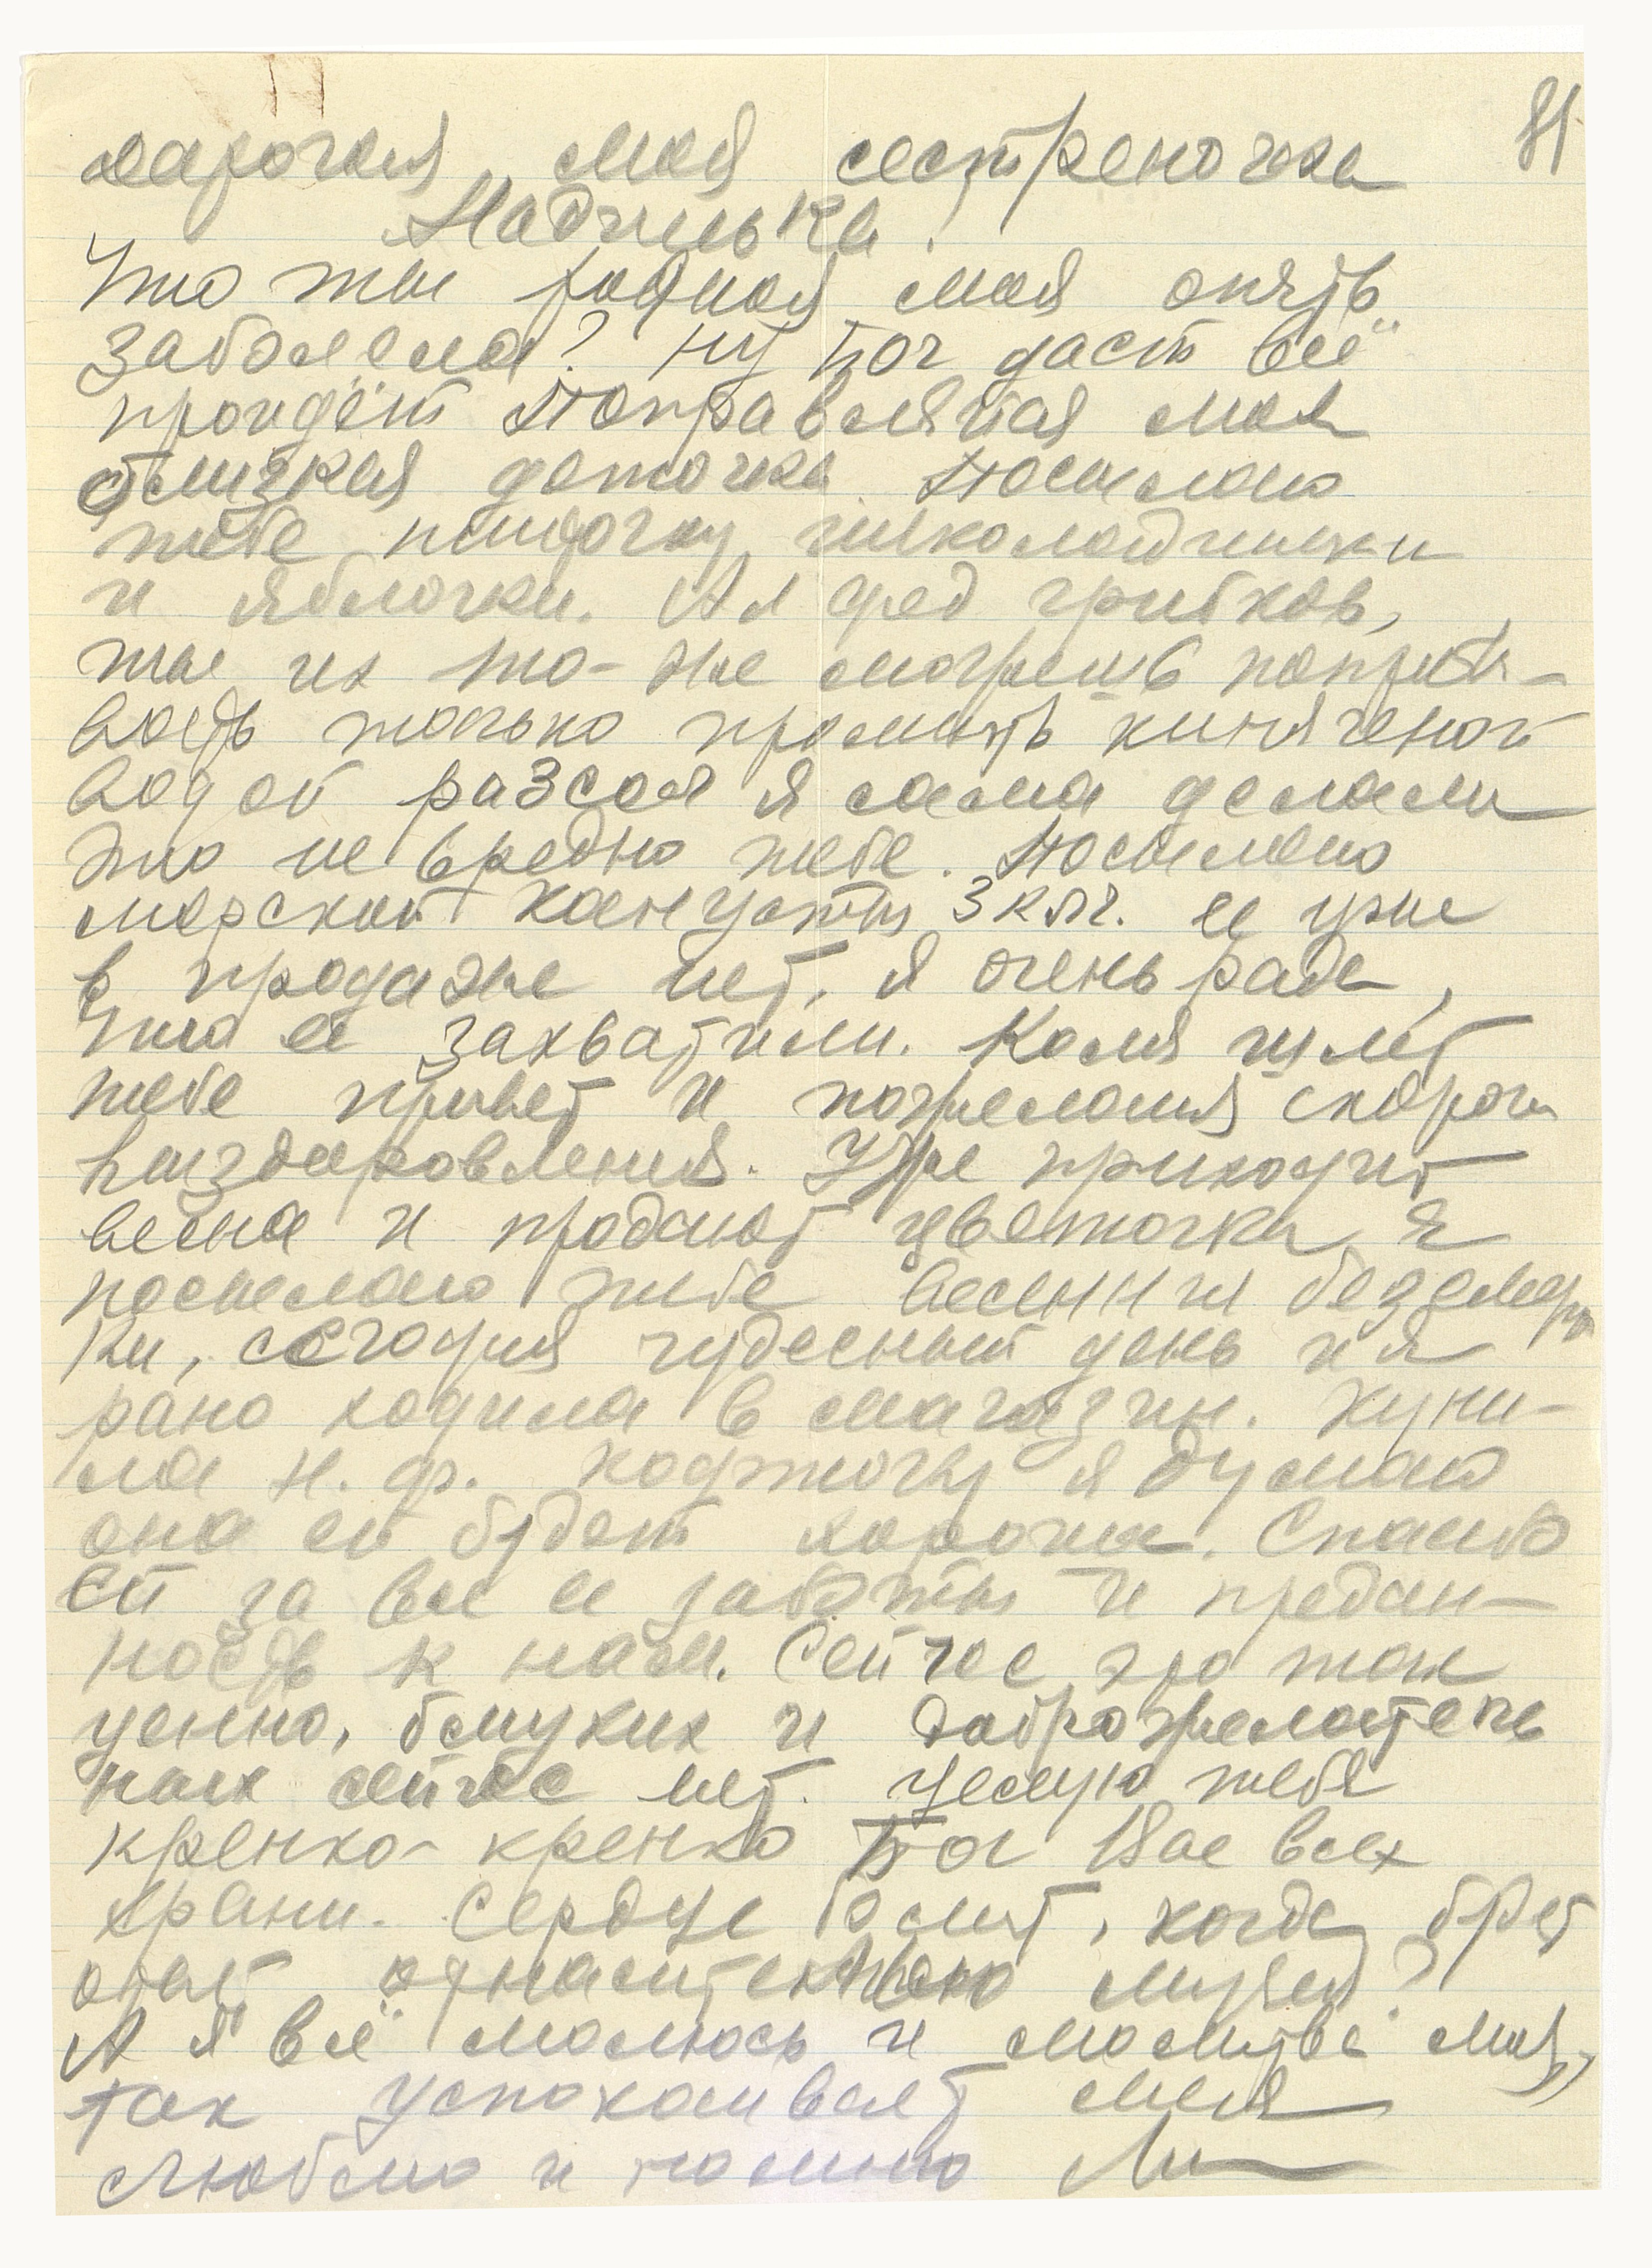 81
дарогая моя сестреночка
Надинька!
Что ты родная моя опять
заболела? Ну Бог даст всё
пройдёт Поправляйся моя
близкая деточка. Посылаю
тебе пищочку, шиколадчики
и яблочки. Ал фред грибков,
ты их то-же можешь попроб-
водь только промыть кипяченой
водой разсол я сама делали
это не вредно тебе. Посылаю
морской капусты 3 клг. ее уже
в продаже нет, я очень рада,
что её захватили. Коля шлёт
тебе привет и пожелания скорого
выздаровления. Уже приходит
весна и продают цветочки, я
посылаю тебе весенни
ки, сегодня чудесный день и я
рано ходила в магазин. Купи-
ла Н. Ф. кофточку я думаю
она ей будет хороша. Спасибо
ей за все ее заботы и предан-
ность к нам. Сейчас это так
ценно, близких и доброжелатель
ных сейчас нет. Целую тебя
крепко-крепко Бог Вас всех
храни. Сердце болит, когда
относительно музея?
А я всё молюсь и молитва моя,
так успокаивает меня
Люблю и помню Ли